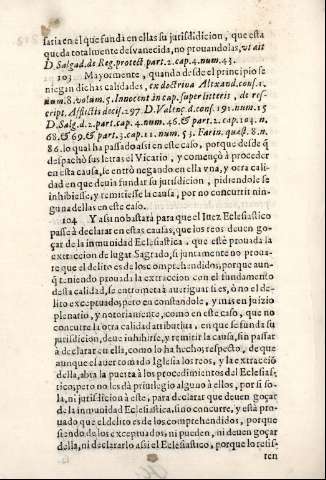 saria en el que funda en ellas su jurisdidicion, que esta
queda totalmente desvanecida, no prouandolas, vt ait
D. Salgad. de Reg. protest part. 2. cap. 4. num. 43.
103 Mayormente, quando desde el principio se
niegan dichas calidades, ex doctrina Alexand. cons. 1.
num. 8. volum. 5. Innocent in cap. super litteris, de res-
cript. Afflictis decis. 297 D. Valenç. d. cons. 191. num. 15
D. Salg. d. 2. part. cap. 4. num. 46. & part. 2. cap. 103. n.
68. & 69. & part. 3. cap. 11. num. 53. Farin. quæst. 8. n.
86. lo qual ha passado assi en este caso, porque desde q̃
despachò sus letras el Vicario, y començò à proceder
en esta causa, le entrò negando en ella vna, y otra cali-
dad en que deuia fundar su jurisdicion, pidiendole se
inhibiesse, y remitiesse la causa, por no concurrir nin-
guna dellas en este caso.
104 Y assi no bastarà para que el Iuez Eclesiastico
passe à declarar en estas causas, que los reos deuen go-
çar de la inmunidad Eclesiastica, que estè prouada la
extraccion de lugar Sagrado, si juntamente no proua-
re que el delito es de los comprehendidos; porque aun-
q̃ teniendo prouada la extraccion con el fundamento
desta calidad, se entrometa à auriguar si es, ò no el de-
lito exceptuado; pero en constandole, y mas en juizio
plenario, y notoriamente, como en este caso, que no
concurre la otra calidad atributiua, en que se funda su
jurisdicion, deue inhibirse, y remitir la causa, sin passar
à declarar en ella, como lo ha hecho; respecto, de que
aunque el auer tomado Iglesia los reos, y la extracciõ
della, abra la puerta à los procedimientos del Eclesias-
tico; pero no les dà priuilegio alguno à ellos, por si so-
la, ni jurisdicion à este, para declarar que deuen goçar
de la inmunidad Eclesiastica, sino concurre, y està pro-
uado que el delito es de los comprehendidos, porque
siendo de los exceptuados, ni pueden, ni deuen goçar
della, ni declararlo assi el Eclesiastico, porque lo resis-
ten